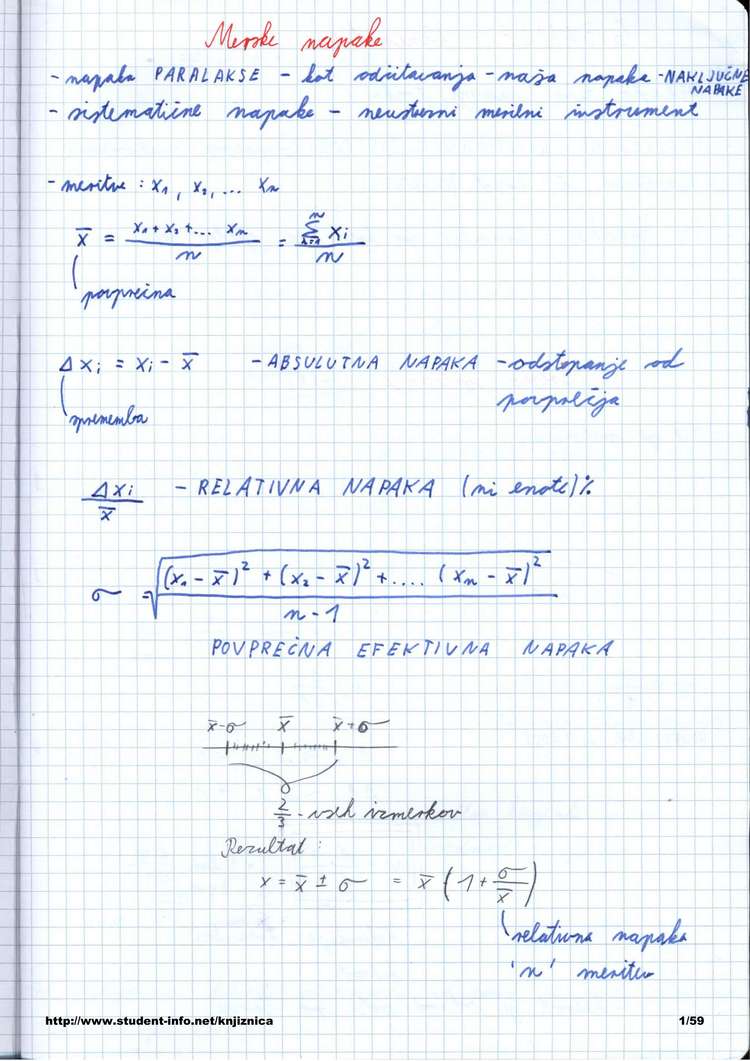 Merske napake
- napaka PARALAKSE - kot odčitavanja - naša napaka - NAKLJUČNE NAPAKE
- sistematične napake - neustrezni merilni instrument
- meritve : x₁, x₂, ... xₙ
x̄ = (x₁ + x₂ + ... xₙ) / n = (∑ᵢ₌₁ⁿ xᵢ) / n
povprečna
Δxᵢ = xᵢ - x̄ - ABSULUTNA NAPAKA - odstopanje od
povprečja
sprememba
Δxᵢ / x̄ - RELATIVNA NAPAKA (ni enote) %
σ = √(((x₁ - x̄)² + (x₂ - x̄)² + .... (xₙ - x̄)²) / (n - 1))
POVPREČNA EFEKTIVNA NAPAKA
x̄-σ x̄ x̄+σ
2/3 - vseh izmerkov
Rezultat :
x = x̄ ± σ = x̄ (1 + σ/x̄)
relativna napaka
'n' meritev
http://www.student-info.net/knjiznica 1/59